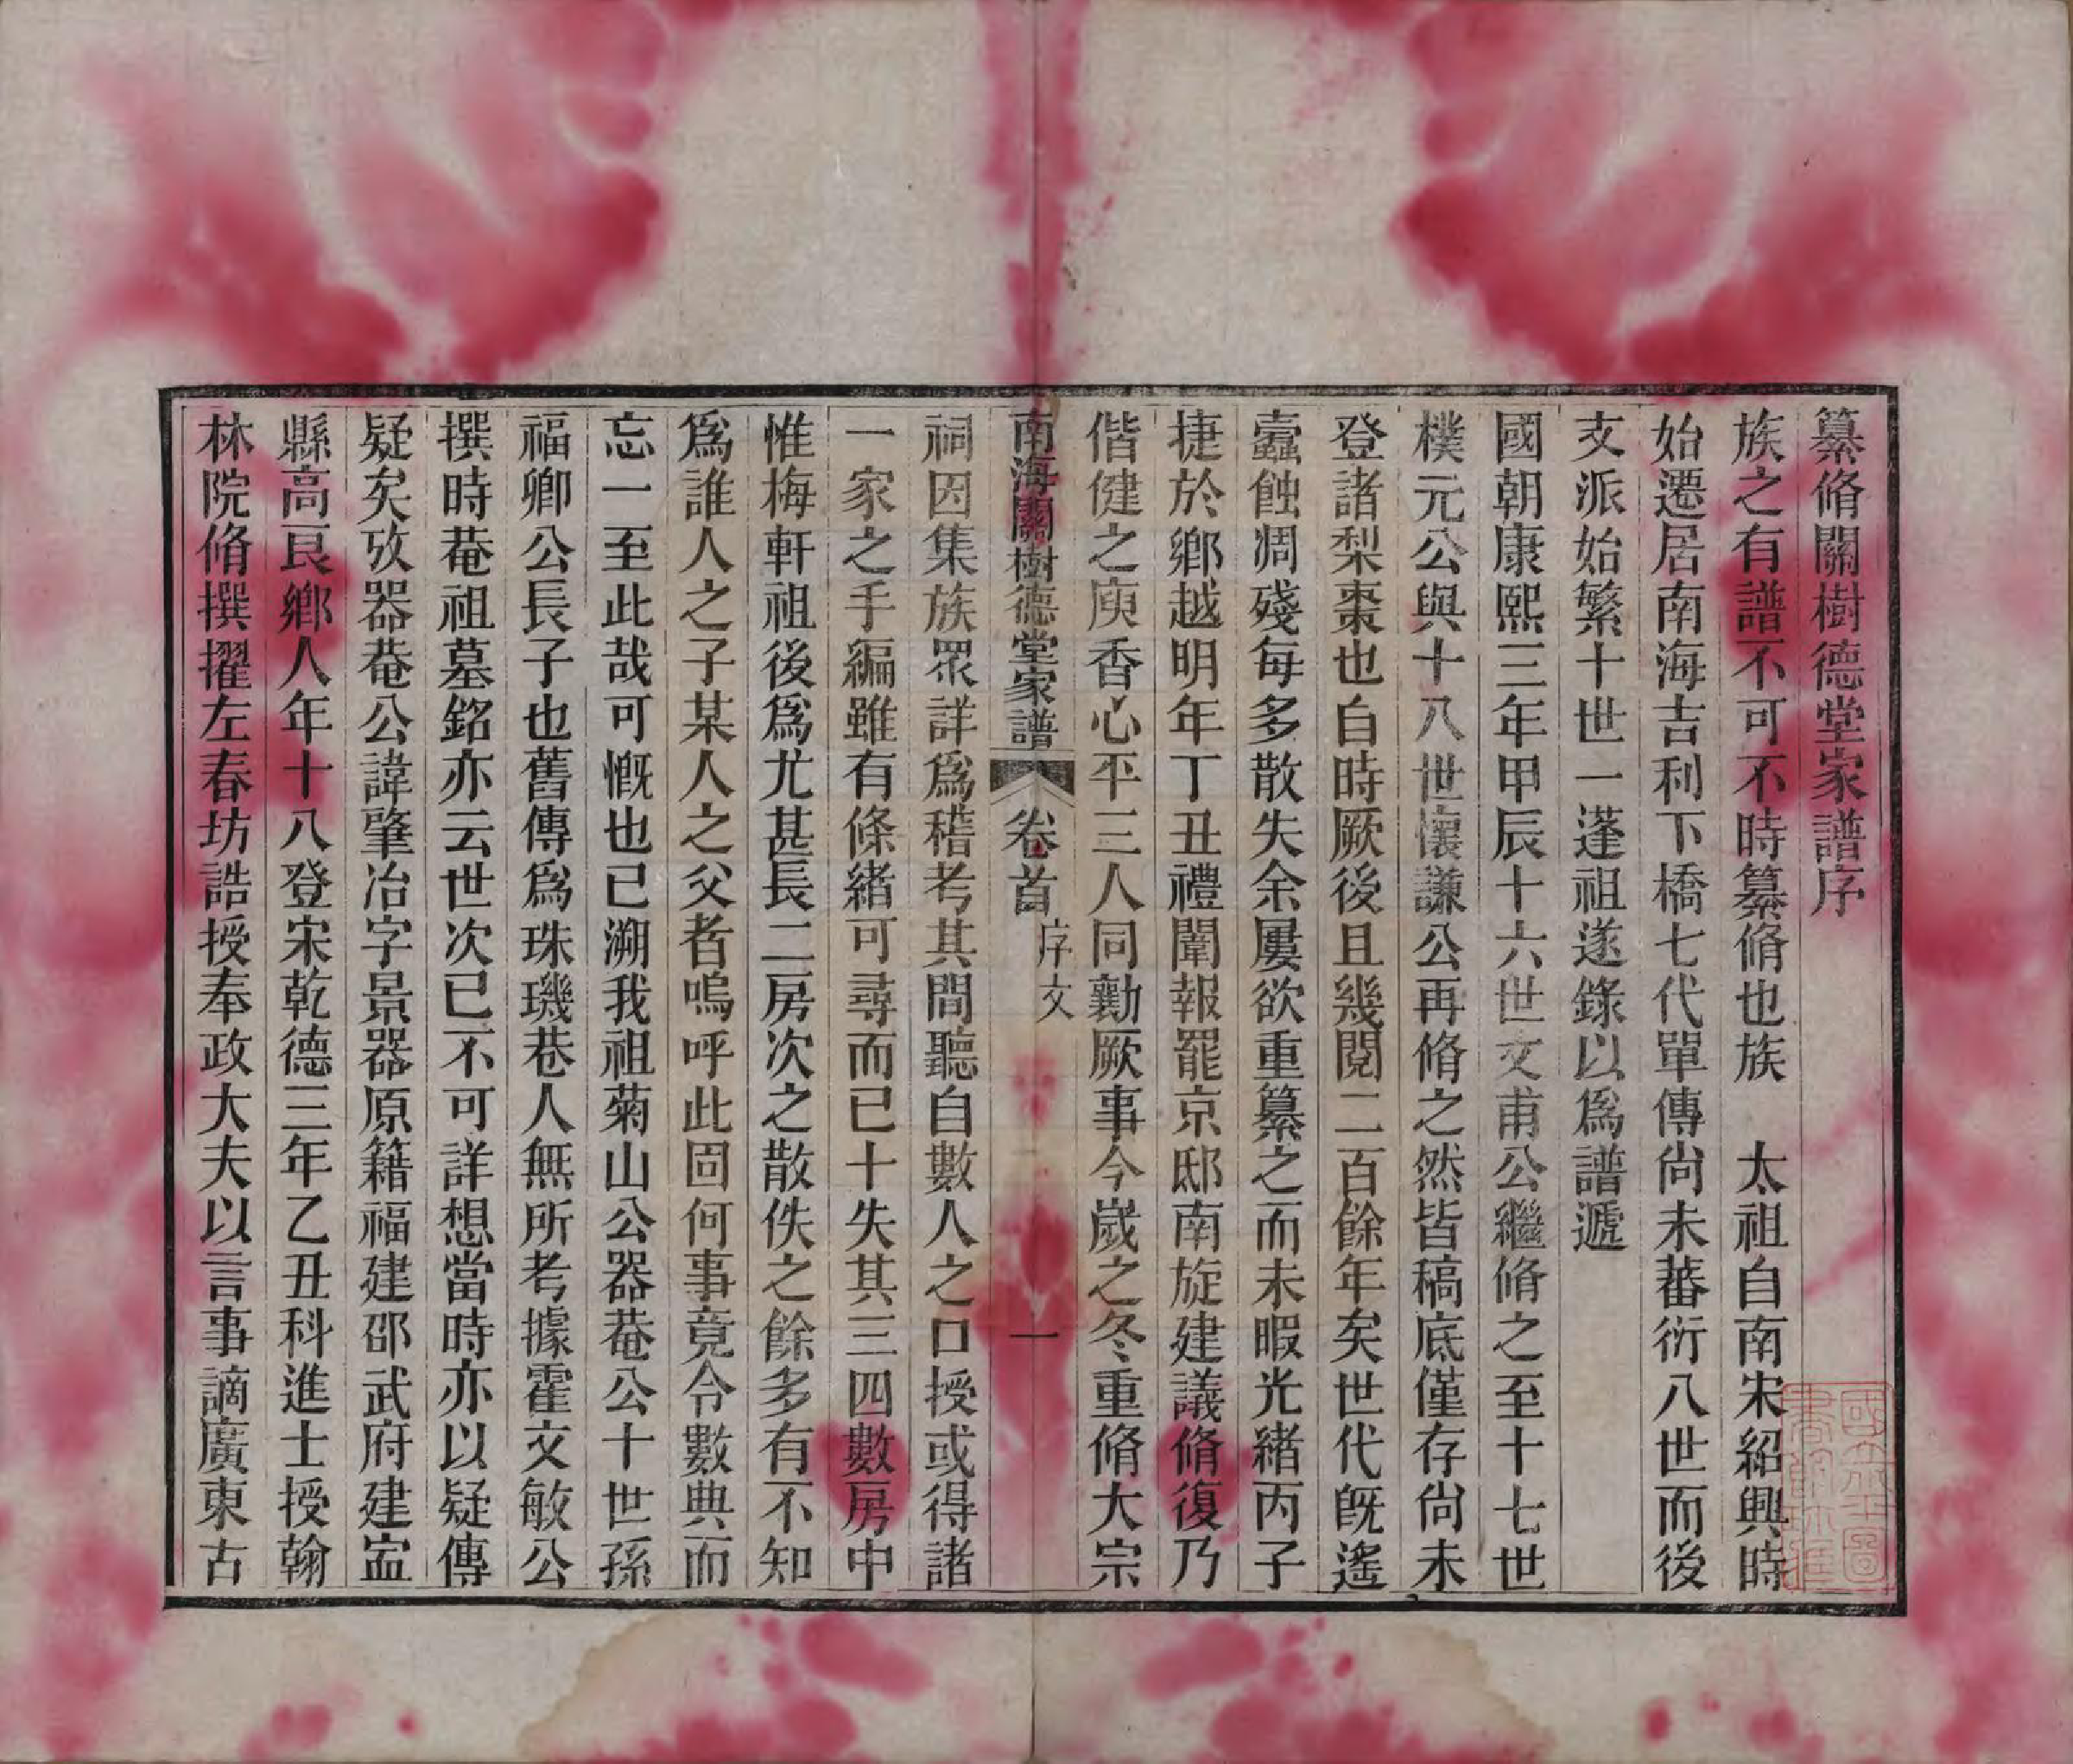 纂脩關樹德堂家譜序
族之有譜不可不時纂脩也族　太祖自南宋紹興時
始遷居南海吉利下橋七代單傳尙未蕃衍八世而後
支派始繁十世一蓬祖遂錄以爲譜遞
國朝康熙三年甲辰十六世文甫公繼脩之至十七世
樸元公與十八世懷謙公再脩之然皆稿底僅存尙未
登諸梨棗也自時厥後且幾閱二百餘年矣世代旣遙
蠧蝕凋殘每多散失余屢欲重纂之而未暇光緒丙子
捷於鄉越明年丁丑禮闈報罷京邸南旋建議脩復乃
偕健之庾香心平三人同勷厥事今歲之冬重脩大宗
南海關樹德堂家譜　卷首　序文　一
祠因集族眾詳爲稽考其間聽自數人之口授或得諸
一家之手編雖有條緒可尋而已十失其三四數房中
惟梅軒祖後爲尤甚長二房次之散佚之餘多有不知
爲誰人之子某人之父者嗚呼此固何事竟令數典而
忘一至此哉可慨也已溯我祖菊山公器菴公十世孫
福卿公長子也舊傳爲珠璣巷人無所考據霍文敏公
撰時菴祖墓銘亦云世次已不可詳想當時亦以疑傳
疑矣攷器菴公諱肇冶字景器原籍福建邵武府建寍
縣高艮鄉人年十八登宋乾德三年乙丑科進士授翰
林院脩撰擢左春坊誥授奉政大夫以言事謫廣東古
國立北平圖
書館珍藏